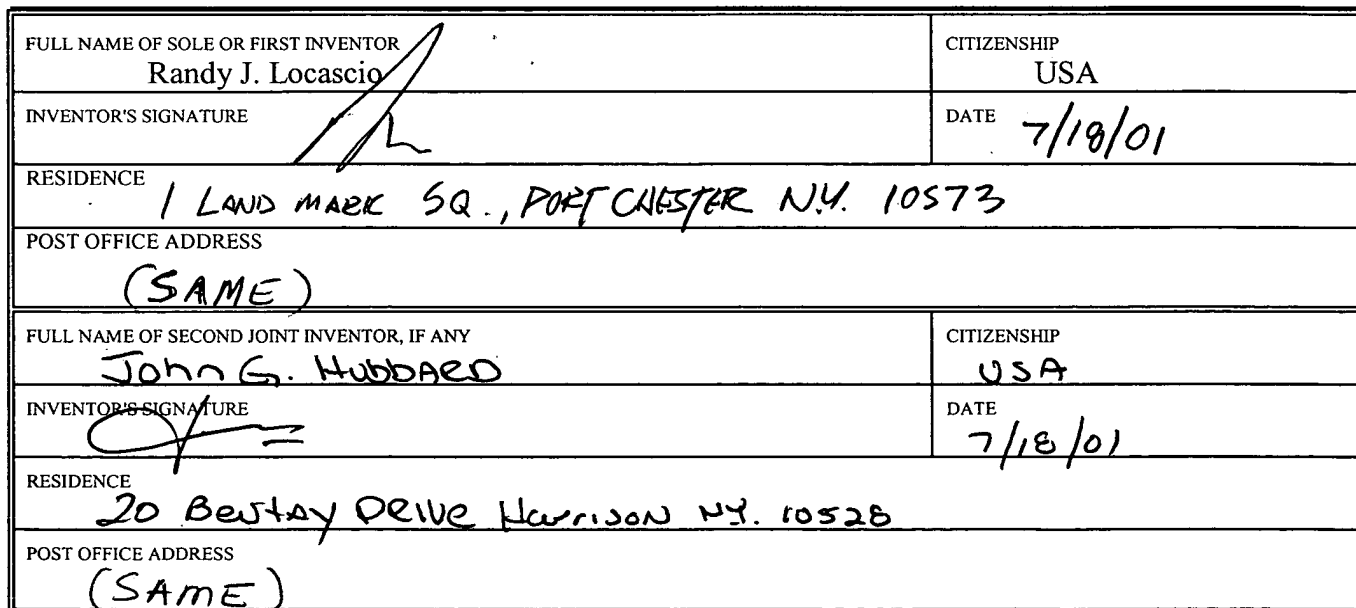 FULL NAME OF SOLE OR FIRST INVENTOR
Randy J. Locascio
CITIZENSHIP
USA
INVENTOR'S SIGNATURE
DATE 7/18/01
RESIDENCE 1 LAND MARK SQ., PORT CHESTER N.Y. 10573
POST OFFICE ADDRESS
(SAME)
FULL NAME OF SECOND JOINT INVENTOR, IF ANY
John G. HubbARD
CITIZENSHIP
USA
INVENTOR'S SIGNATURE
DATE
7/18/01
RESIDENCE
20 Drive Harrison NY. 10528
POST OFFICE ADDRESS
(SAME)